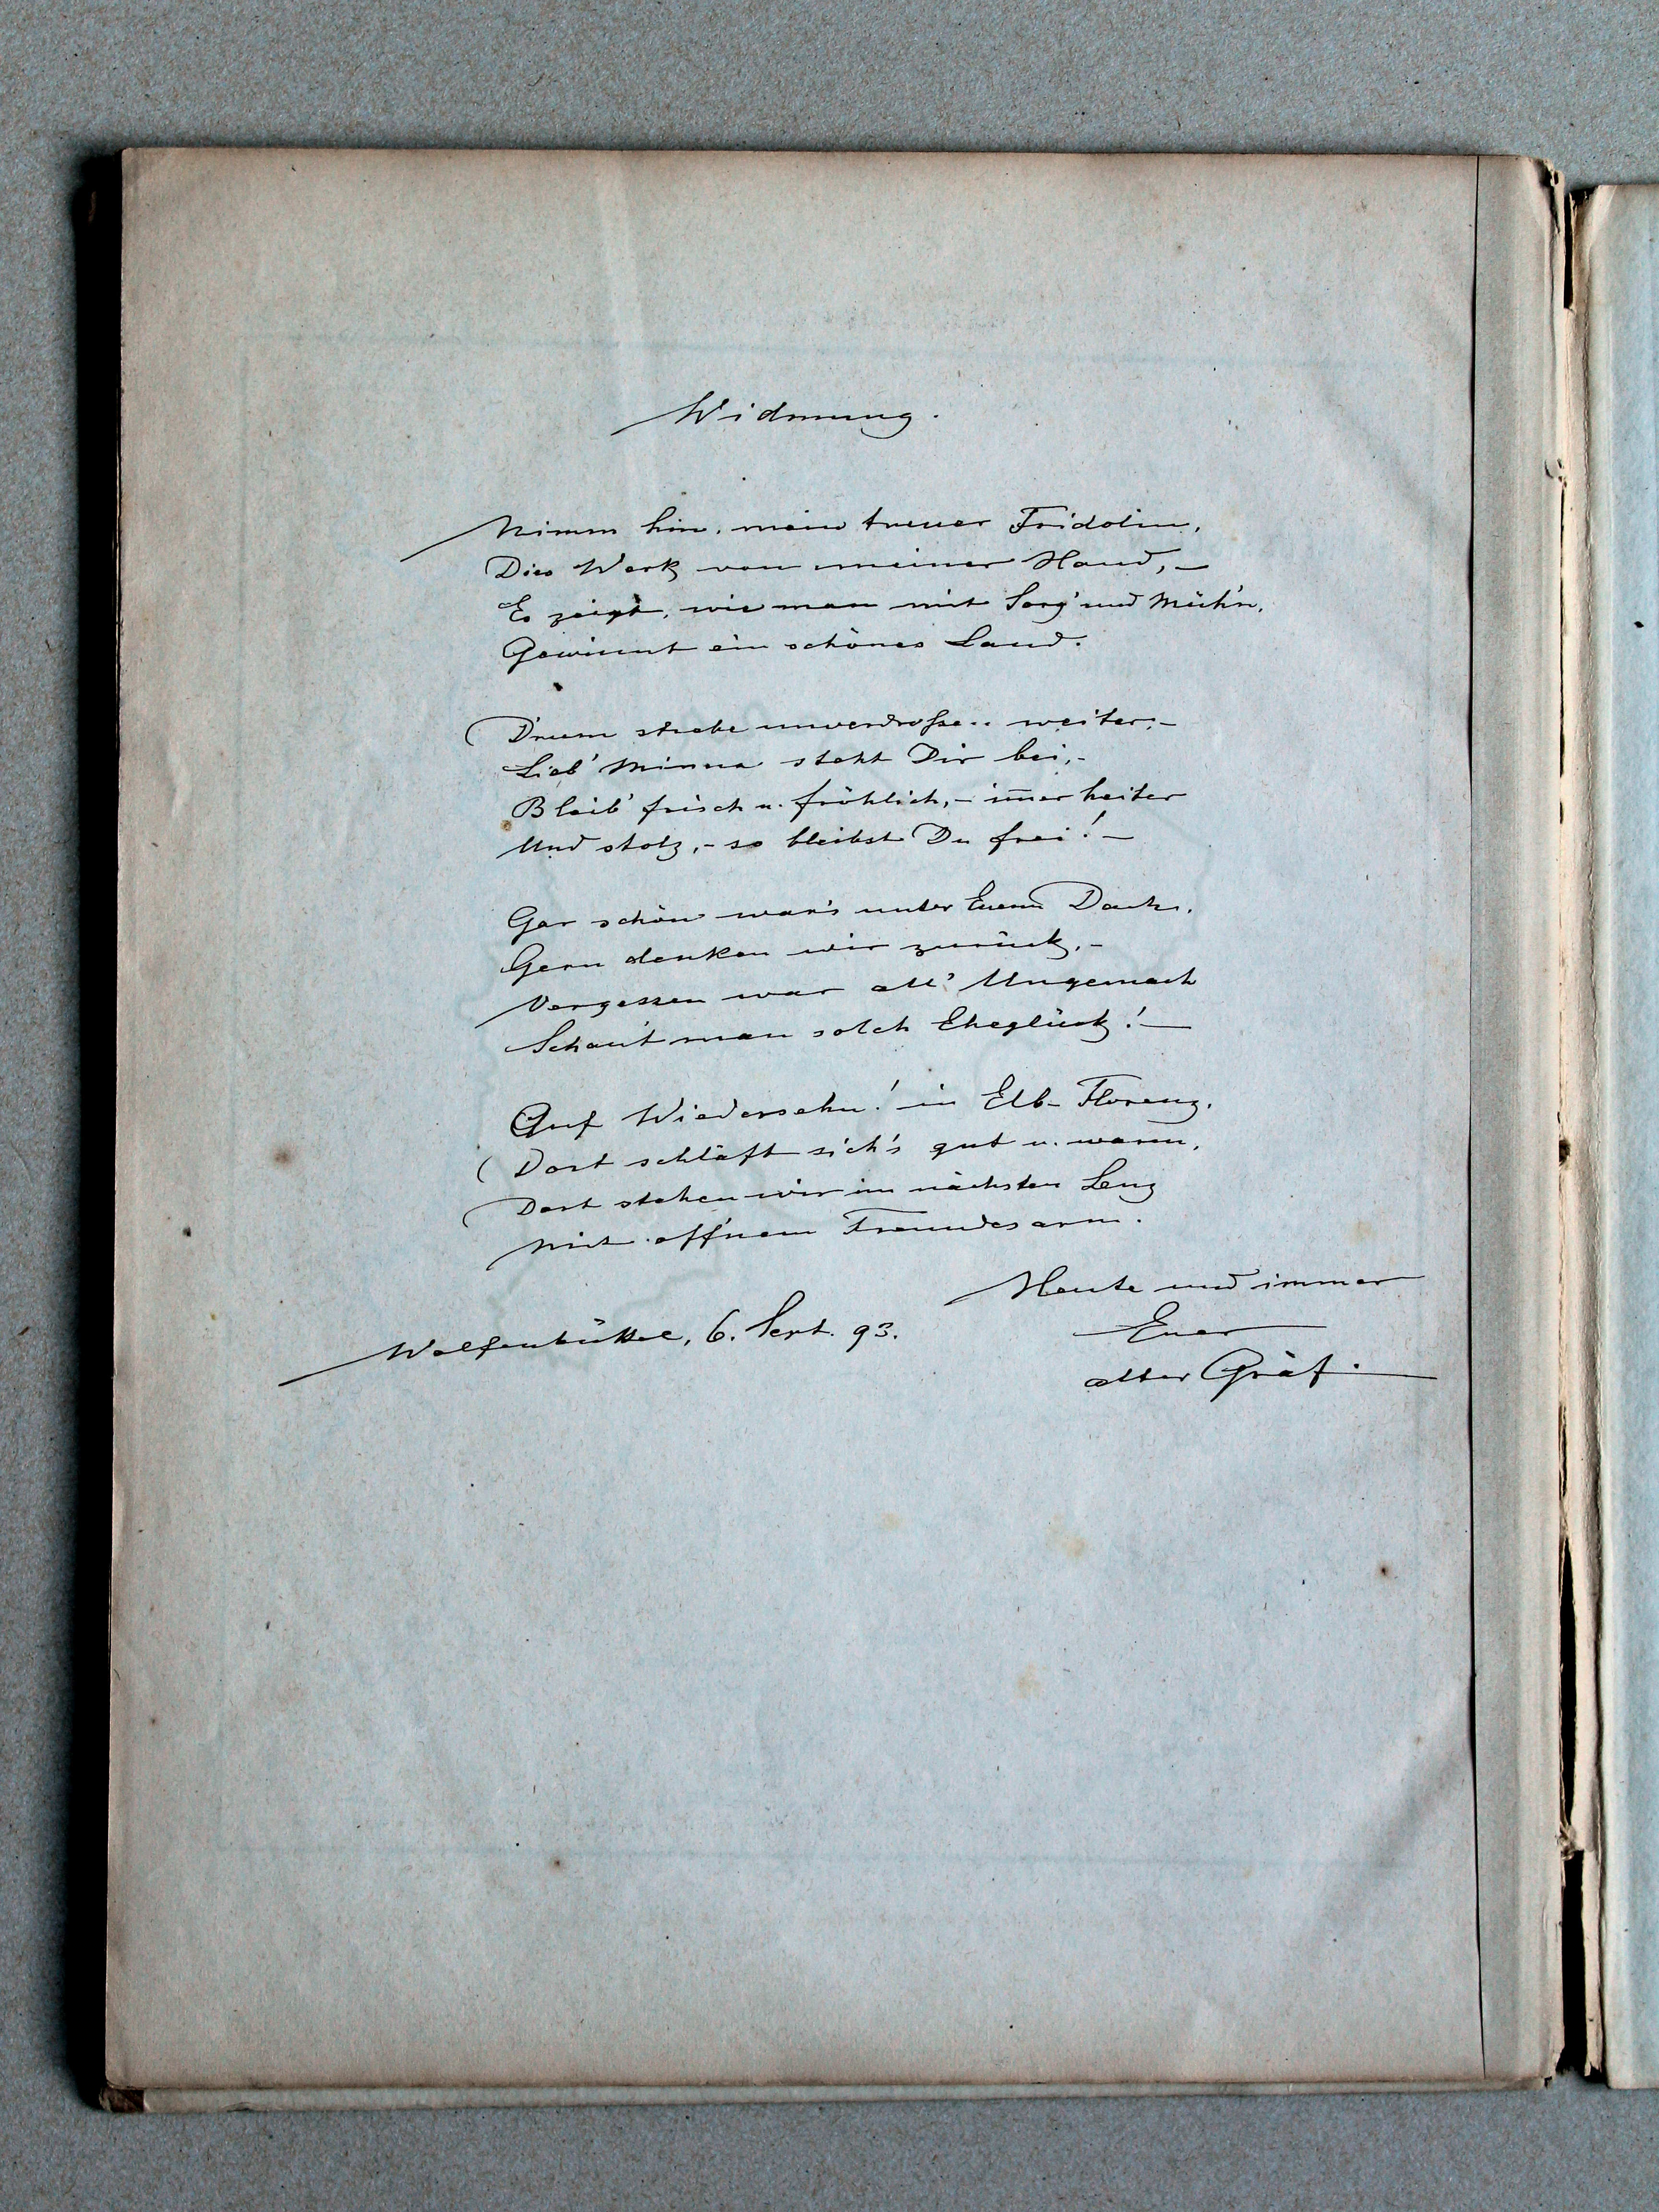 Widmung.
Nimm hin, mein treuer Fridolin,
Dies Werk von meiner Hand, –
Es zeigt, wie man mit Sorg' und Müh'n,
Gewinnt ein schönes Land.
D'rum strebe unverdroßen weiter, –
Lieb' Minna steht Dir bei, –
Bleib' frisch u. fröhlich, – im̅er heiter
Und stolz, – so bleibst Du frei! –
Gar schön war's unter Euerm Dach,
Gern denken wir zurück, –
Vergessen war all' Ungemach
Schaut man solch Eheglück! –
Auf Wiedersehn! in Elb-Florenz,
Dort schläft sich's gut u. warm,
Dort stehen wir im nächsten Lenz
Mit off'nem Freundesarm.
Heute und immer
Euer
alter Gräf.
Wolfenbüttel, 6. Sept. 93.